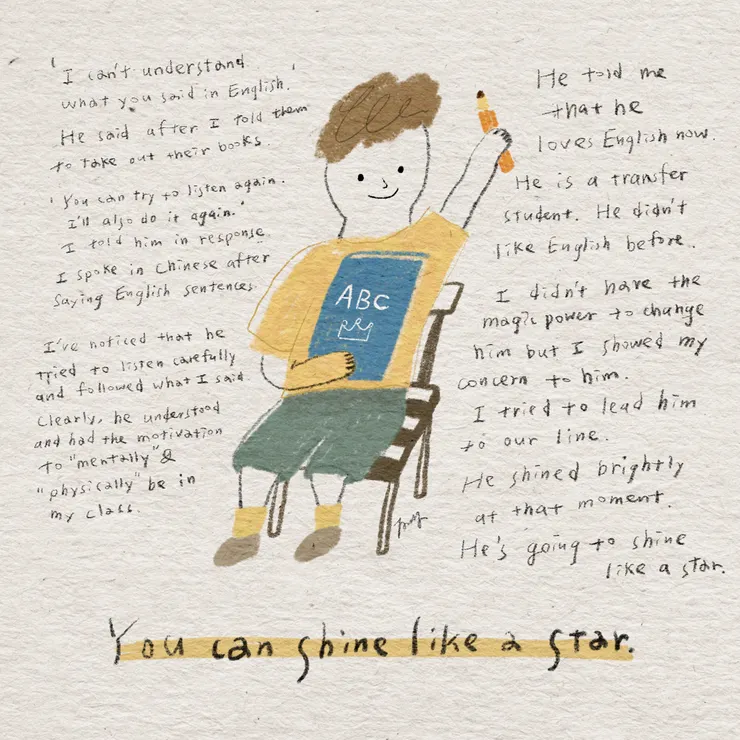 'I can't understand
what you said in English.'
He said after I told them
to take out their books.
'You can try to listen again.
I'll also do it again.'
I told him in response.
I spoke in Chinese after
saying English sentences.
I've noticed that he
tried to listen carefully
and followed what I said.
Clearly, he understood
and had the motivation
to "mentally" &
"physically" be in
my class.
ABC
He told me
that he
loves English now.
He is a transfer
student. He didn't
like English before.
I didn't have the
magic power to change
him but I showed my
concern to him.
I tried to lead him
to our line.
He shined brightly
at that moment.
He's going to shine
like a star.
You can shine like a star.